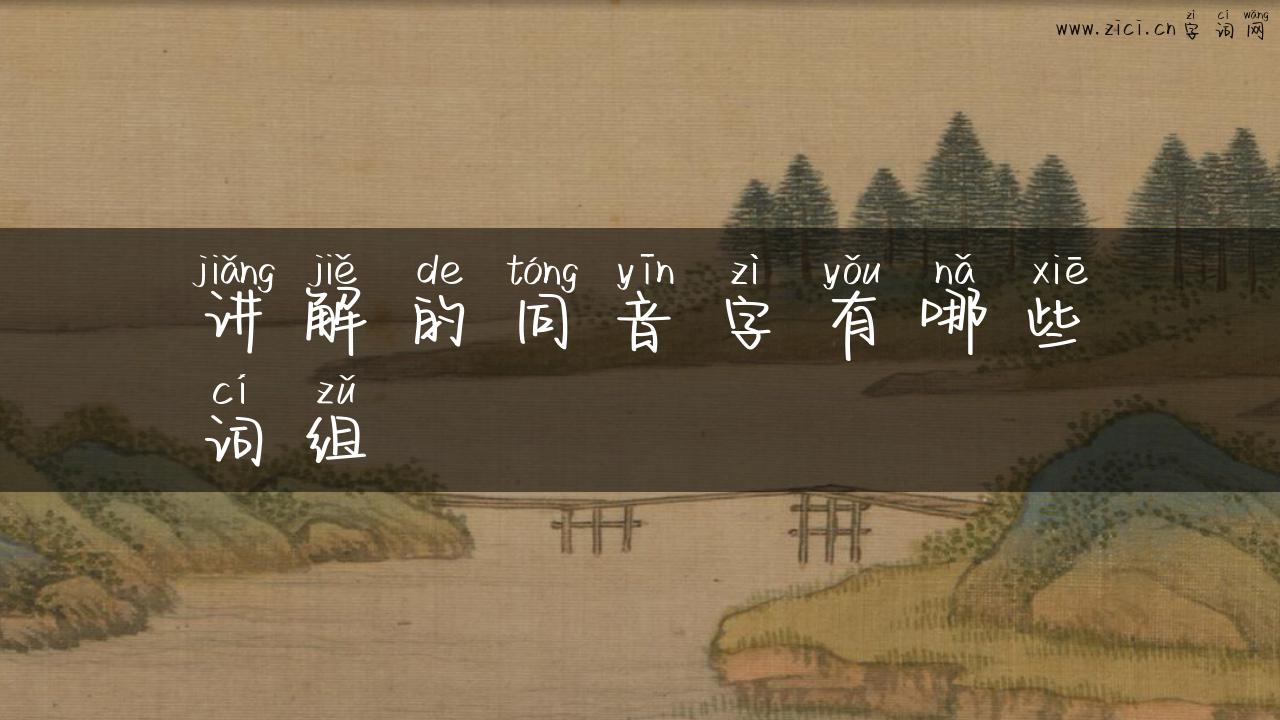 zì cí wǎng
www.zici.cn字词网
jiǎng jiě de tóng yīn zì yǒu nǎ xiē
讲解的同音字有哪些
cí zǔ
词组